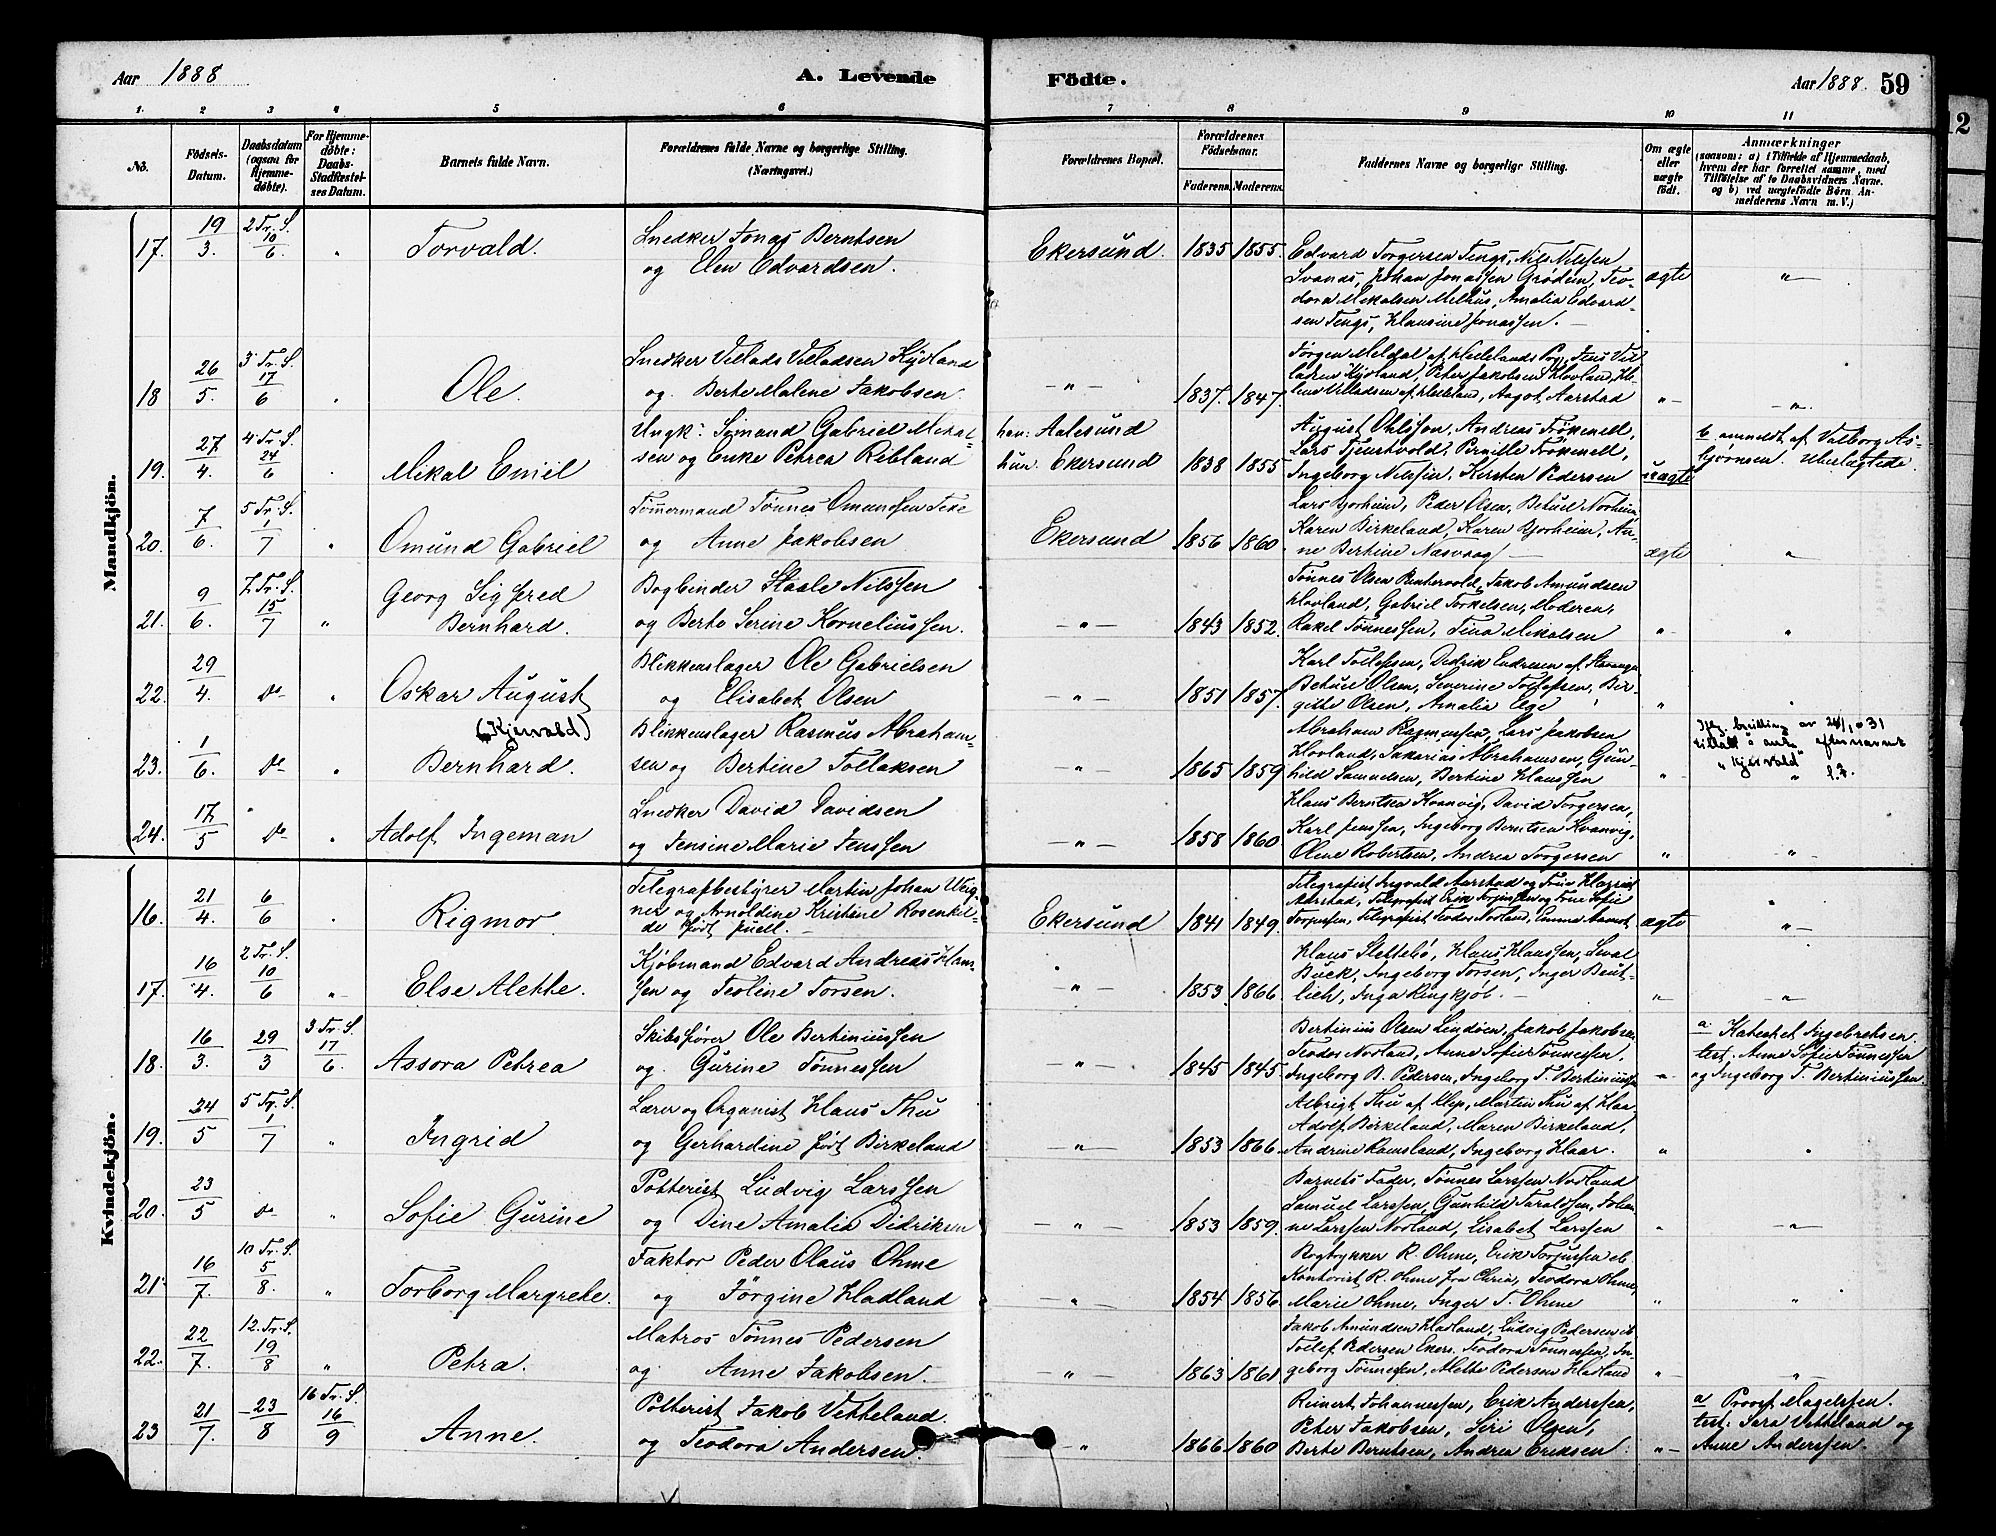 Aar 1888
A. Levende Födte.
Aar 1888. 59
1. 2 3 4 5 6 7 8 9 10 11
No.
Födsels-
Datum.
Daabsdatum
(ogsaa for
Hjemme-
døbte).
For Hjemme-
døbte:
Daabs-
Stadfæstel-
ses Datum.
Barnets fulde Navn.
Forældrenes fulde Navne og borgerlige Stilling.
(Næringsvei.)
Forældrenes Bopæl.
Forældrenes
Födselsaar.
Faderens. Moderens.
Faddernes Navne og borgerlige Stilling.
Om ægte
eller
uægte
født.
Anmærkninger
(saasom: a) i Tilfælde af Hjemmedaab,
hvem der har forrettet samme, med
Tilföielse af to Daabsvidners Navne.
og b) ved uægtefödte Börn An-
melderens Navn m. V.)
Mandkjön.
17. 19/3. 2 Tr. S. 10/6. " Torvald.
Snedker Jonas Berntsen
og Elen Edvardsen.
Ekersund. 1835 1855.
Edvard Torgersen Tengs, Nils Nilssen
Svanes, Johan Jonassen Grødem, Teo-
dora Mikalsen Melhus, Amalia Edvard
sen Tengs, Klausine Jonassen. —
ægte — " —
18 26/5. 3 Tr. S. 17/6 " Ole.
Snedker Villads Villadsen Kydland
og Berte Malene Jakobsen
— " — 1837. 1847.
Peter Jakobsen Hovland,
Aagot Aarstad
" — — " —
19. 27/4. 4 Tr. S. 24/6 Mikal Emil
Ungk: Sømand Gabriel Mikal-
sen og Enke Petrea Ribland
han: Aalesund
hun: Ekersund 1838 1855
August Ohlsson, Andreas Frøkenell,
Lars Tjensvold, Pernille Frøkenell,
Ingeborg Nilssen, Kirsten Pedersen
uægte
b anmeldt af Valborg As-
bjørnsen.
20. 7/6. 5 Tr. S. 1/7 " Omund Gabriel
Tømmermand Tønnes Omundsen
og Anne Jakobsen
Ekersund 1856 1860
Lars Bjorheim, Peder Olsen, Betuel Norheim
Karen Birkeland, Karen Bjorheim, An-
ne Bertine Næsvaag —
ægte "
21. 9/6. 7 Tr. S. 15/7 " Georg Sigfred
Bernhard.
Bogbinder Staale Nilssen
og Berte Serine Korneliussen.
— " — 1843 1852.
Tønnes Olsen, Jakob Amundsen
Hovland, Gabriel Torkelsen, Moderen,
Rakel Tønnessen, Tina Mikalsen
" "
22. 29/4. do " Oskar August
Blikkenslager Ole Gabrielsen
og Elisabet Olsen
— " — 1851 1857.
Karl Tollefsen, Didrik Endresen af Stavanger
Betuel Olsen, Severine Tollefsen, Bir-
gitte Olsen, Amalia Ege
" "
23. 1/6. do " (Kjervald)
Bernhard.
Blikkenslager Rasmus Abraham-
sen og Bertine Tollaksen
1865 1859
Abraham Rasmussen, Lars Jakobsen
Hovland, Sakarias Abrahamsen, Gun-
hild Samuelsen, Bertine Klaussen
"
Ifg. bevilling av 24/1 1931
tillatt å anta efternavnet
"Kjervald"
24. 17/5 do " Adolf Ingeman
Snedker David Davidsen
og Jensine Marie Jenssen
— " — 1858 1860
Klaus Berntsen Kvanvig, David Torgersen,
Karl Jenssen, Ingeborg Berntsen Kvanvig,
Olene Robertsen, Andrea Torgersen
" — " —
Kvindekjön.
16. 21/4. 6/6 Rigmor.
Telegrafbestyrer Martin Johan Weig-
ner og Arnoldine Kristine Rosenkil-
de født Juell. —
Ekersund 1841 1849.
Telegrafist Ingvald Aarstad og Frue
Aarstad, Telegrafist Erik Torjussen og Frue Sofie
Torjussen, Telegrafist Teodor Norland, Emma Aamot
ægte — " —
17. 16/4. 2 Tr. S. 10/6 " Else Alette.
Kjøbmand Edvard Andreas Han-
sen og Teoline Torsen.
— " — 1853. 1866.
Klaus Slettebø, Klaus Klaussen,
Buck, Ingeborg Torsen, Inger Beut-
lich, Inga Ringkjøb. —
" — " —
18. 16/3. 29/3 3 Tr. S. 17/6. Assora Petrea
Skibsfører Ole Bertiniussen
og Gurine Tønnessen
— " — 1845 1845.
Bertinius Olsen Lindøen, Jakob Jakobsen
Teodor Norland, Anne Sofie Tønnessen,
Ingeborg B. Pedersen, Ingeborg T. Bertiniussen
"
a Katechet Ingebretsen.
test. Anne Sofie Tønnessen
og Ingeborg T. Bertiniussen.
19. 24/5 5 Tr. S. 1/7 " Ingrid
Lærer og Organist Klaus Thu
og Gerhardine født Birkeland
— " — 1853 1866.
Albrigt Thu af Klep, Martin Thu af Klep
Adolf Birkeland, Maren Birkeland,
Andrine Ramsland, Ingeborg Haar.
" "
20. 23/5 do " Sofie Gurine
Potterist Ludvig Larssen
og Dine Amalia Didriksen
— " — 1853 1859.
Barnets Fader, Tønnes Larssen Norland
Samuel Larssen, Gunhild Taraldsen, Johan-
ne Larssen Norland, Lisabet Larssen
" — " —
21. 16/7. 10 Tr. S. 5/8. " Torborg Margrete.
Faktor Peder Olaus Ohme
og Jørgine Hadland
— " — 1854 1856.
Bogtrykker R. Ohme, Erik Torjussen
Kontorist R. Ohme fra, Teodora Ohme,
Marie Ohme, Inger T. Ohme
" "
22. 22/7. 12. Tr. S. 19/8 " Petra.
Matros Tønnes Pedersen
og Anne Jakobsen.
" 1863 1861
Jakob Amundsen Hadland, Ludvig Pedersen
Tollef Pedersen Ekers. Teodora Tønnessen, In-
geborg Tønnessen, Alette Pedersen Hadland
" — — " —
23 21/7. 23/8 16 Tr. S. 16/9 Anne.
Potterist Jakob Vetteland.
og Teodora Andersen.
— " — 1866 1860
Reinert Johannessen, Erik Anderssen,
Peter Jakobsen, Siri Olsen,
Berte Berntsen, Andrea Eriksen.
" —
a Provst Magelssen.
test: Sara Vetteland og
Anne Anderssen.
12